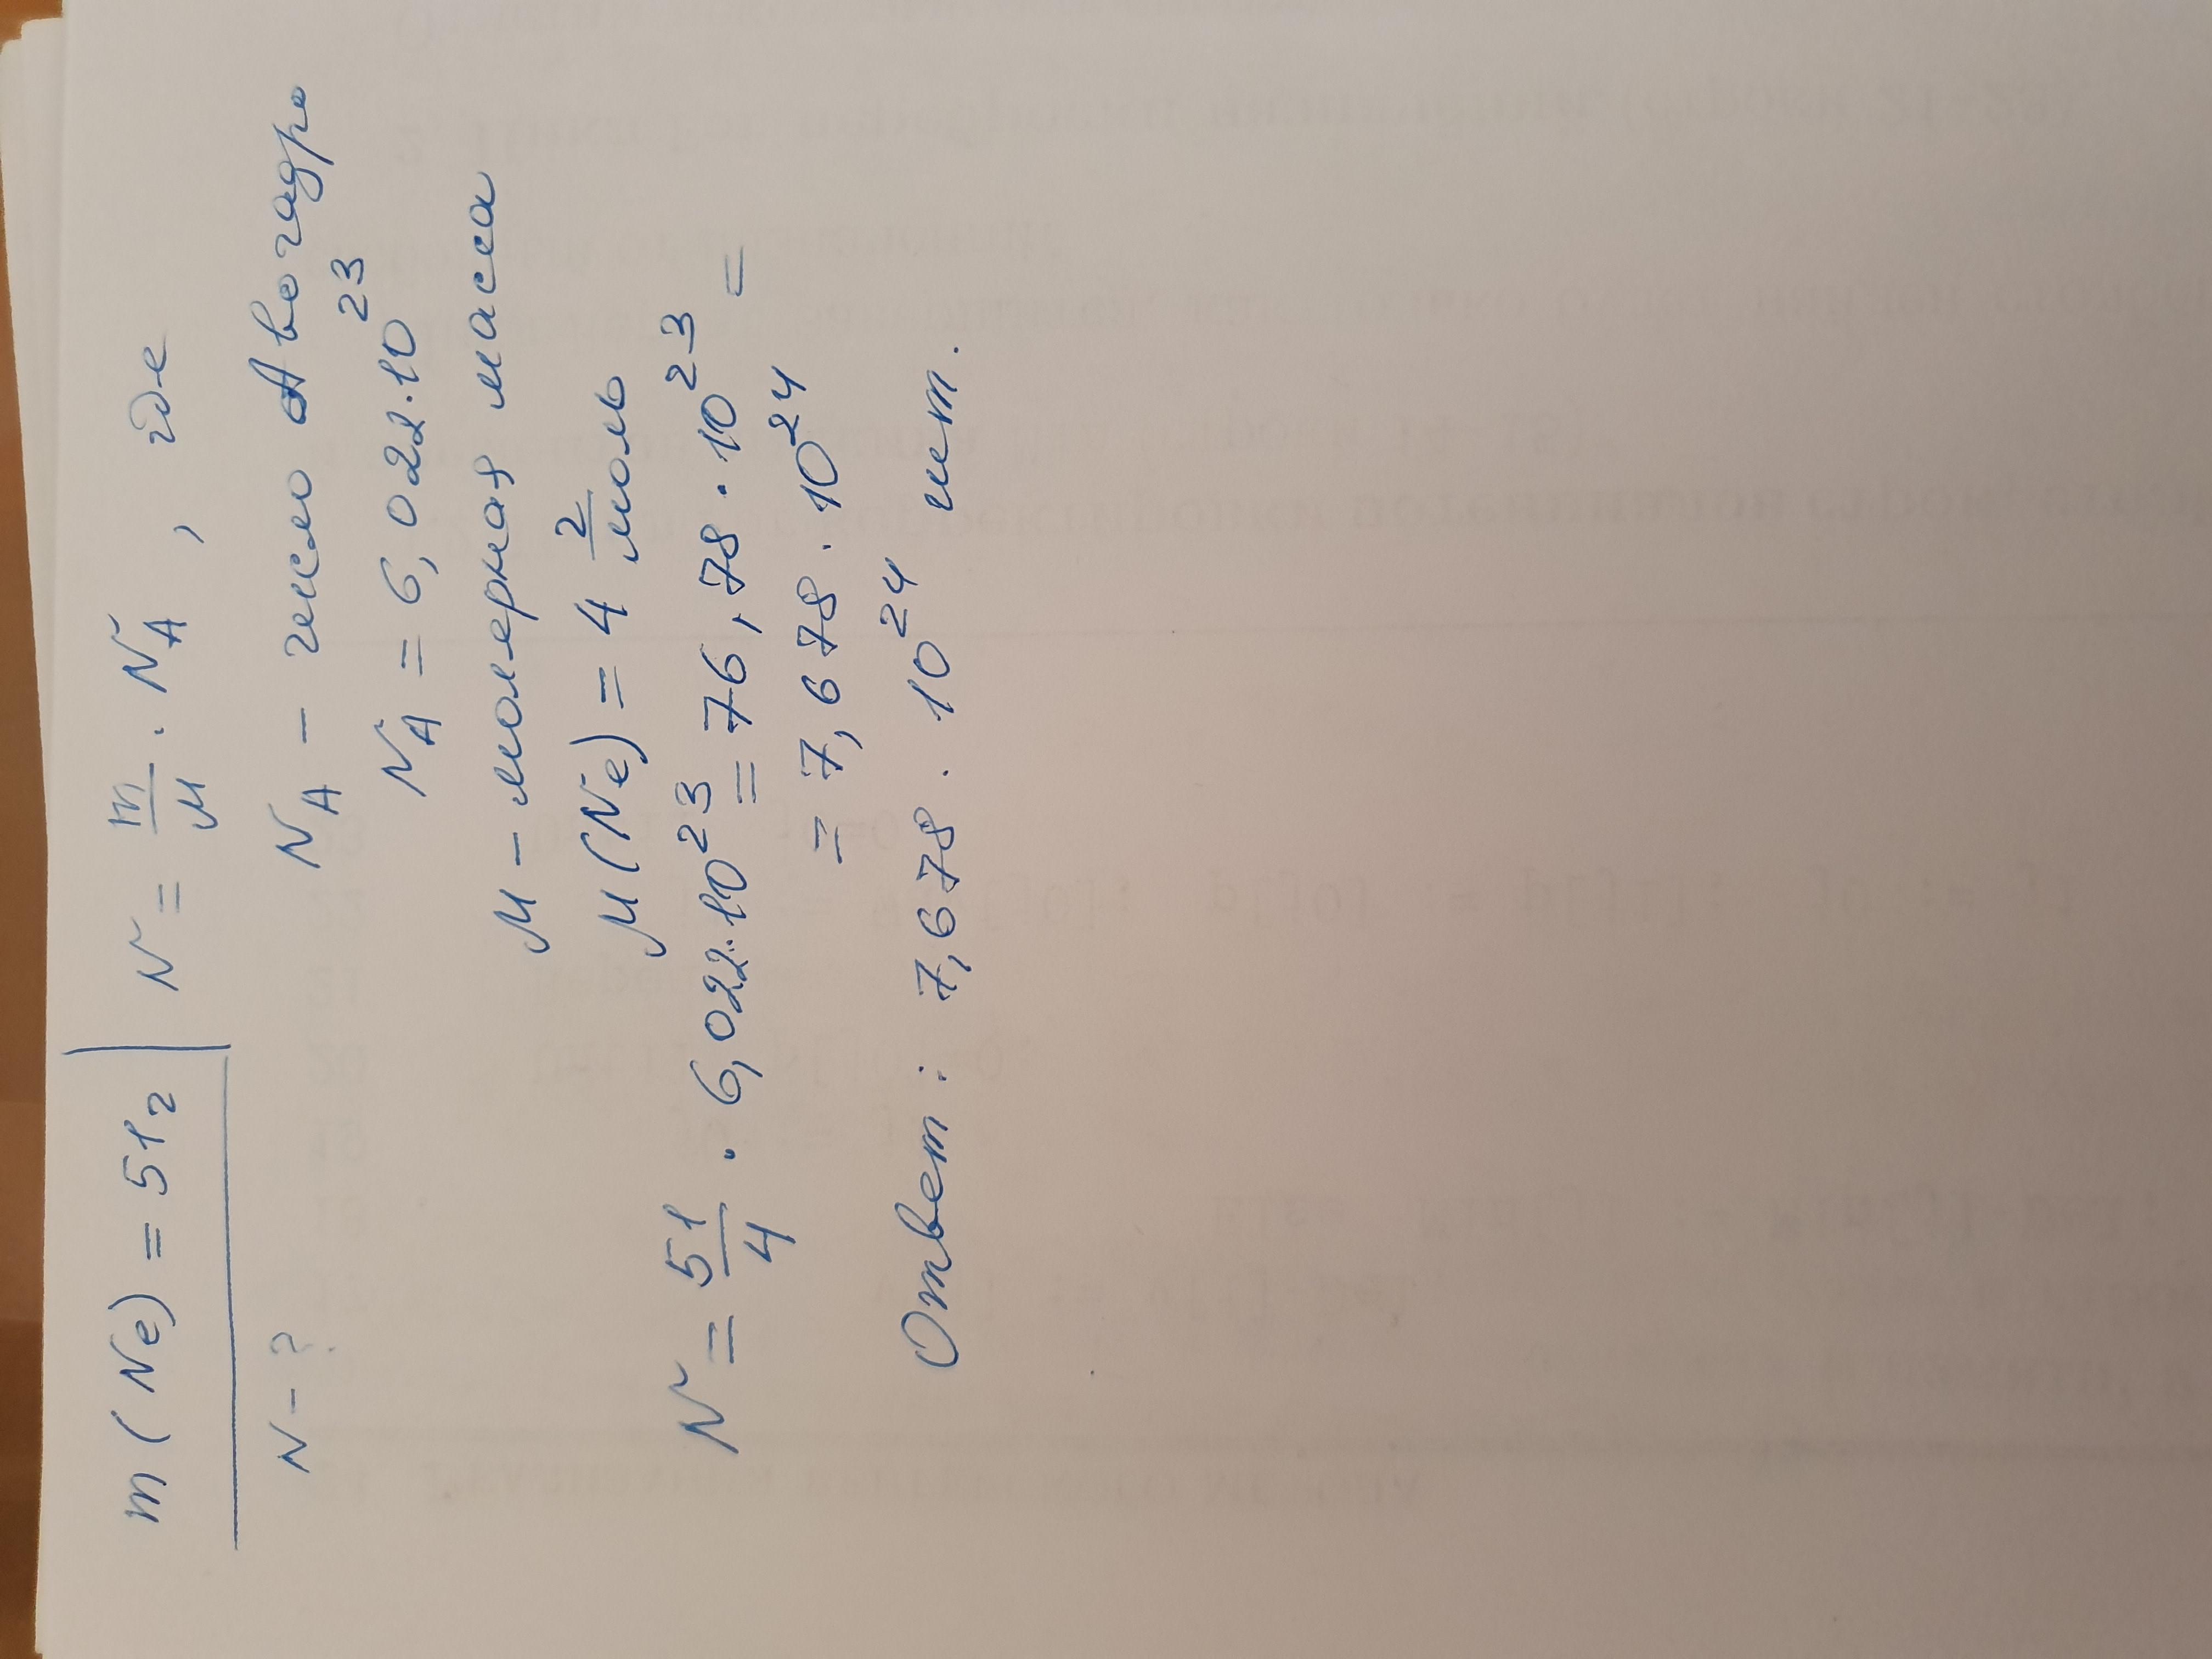 m (Ne) = 51г
N - ?
N = m/M · NA, где
NA - число Авогадро
NA = 6,022·10^23
M - молярная масса
M(Ne) = 4 г/моль
N = 51/4 · 6,022·10^23 = 76,78·10^23 =
= 7,678·10^24
Ответ: 7,678·10^24 шт.